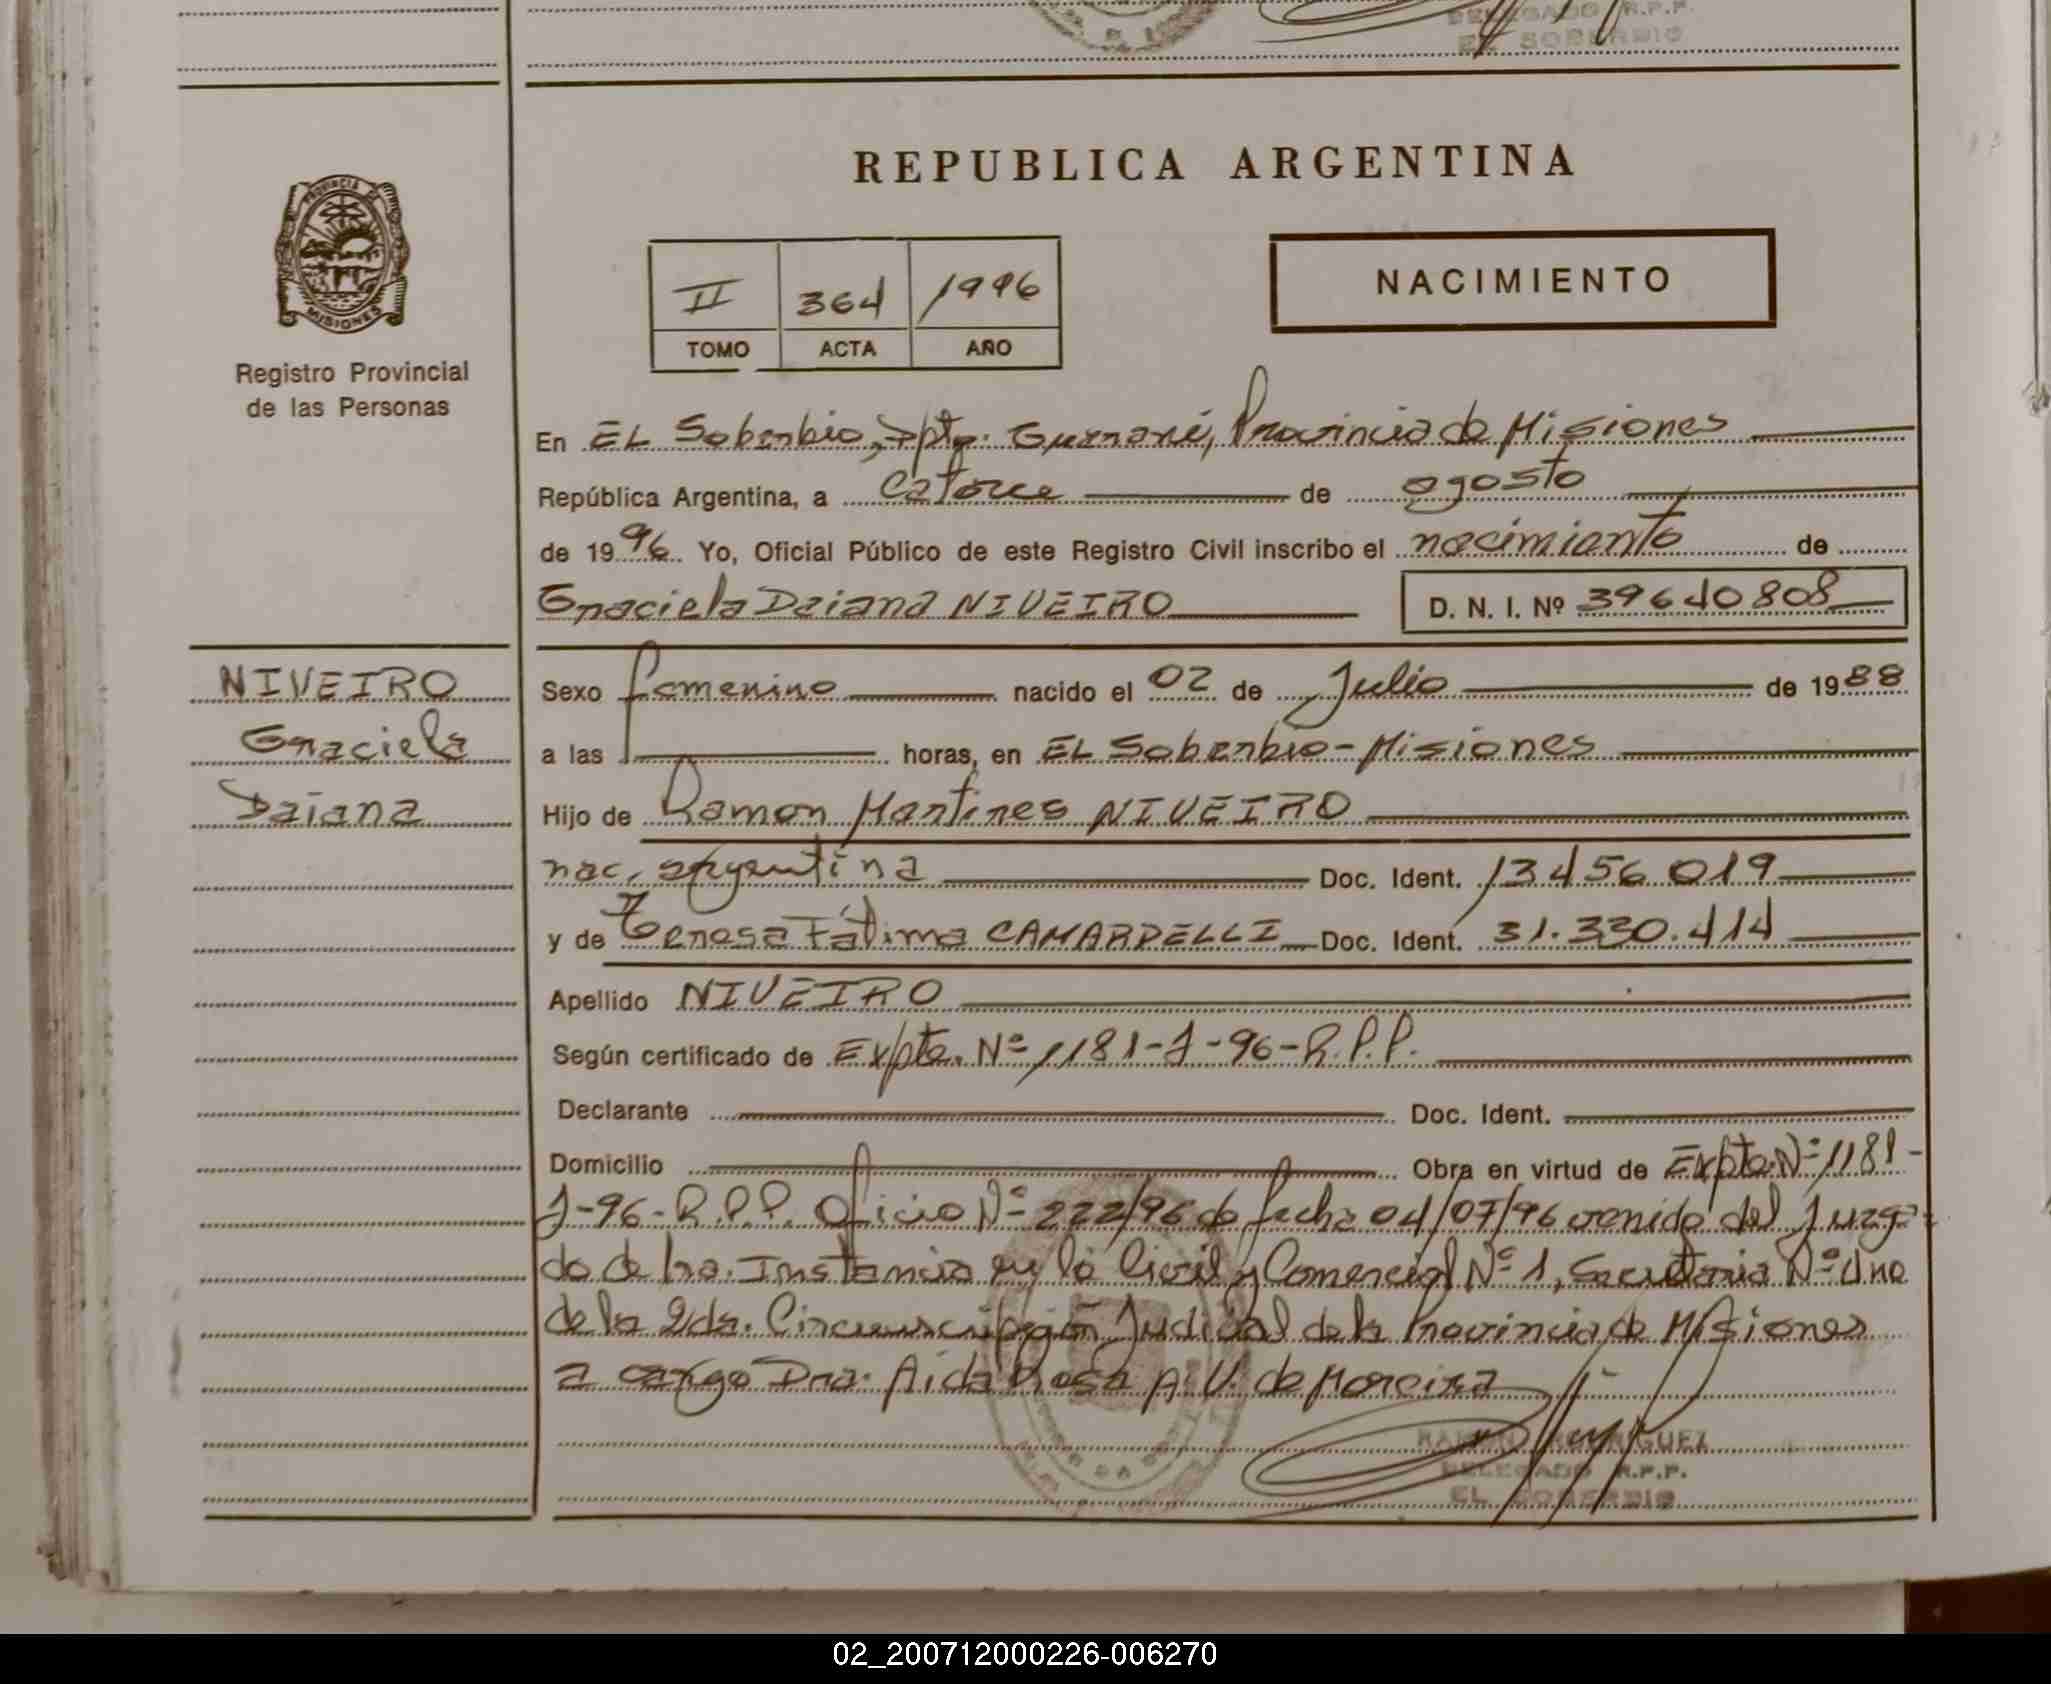 DELEGADO R.P.P.
EL SOBERBIO
REPUBLICA ARGENTINA
PROVINCIA DE
MISIONES
Registro Provincial
de las Personas
II 364 1996
TOMO ACTA AÑO
NACIMIENTO
En EL Soberbio, Dpto. Guaraní, Provincia de Misiones
República Argentina, a catorce de agosto
de 1996 Yo, Oficial Público de este Registro Civil inscribo el nacimiento de
Graciela Daiana NIVEIRO D. N. I. Nº 39640808
NIVEIRO
Graciela
Daiana
Sexo femenino nacido el 02 de Julio de 1988
a las horas, en EL Soberbio - Misiones
Hijo de Ramon Martires NIVEIRO
nac. argentina Doc. Ident. 13456019
y de Teresa Fátima CAMARDELLI Doc. Ident. 31.330.414
Apellido NIVEIRO
Según certificado de Expte. Nº 1181-J-96-R.P.P.
Declarante Doc. Ident.
Domicilio Obra en virtud de Expte Nº 1181-
J-96-R.P.P. Oficio Nº 222/96 de fecha 04/07/96 venido del Juzga-
do de 1ra. Instancia en lo Civil y Comercial Nº 1, Secretaria Nº Uno
de la 2da. Circunscripción Judicial de la Provincia de Misiones
a cargo Dra. Aida Rosa A. V. de Moreira
RAMON RODRIGUEZ
DELEGADO R.P.P.
EL SOBERBIO
02_200712000226-006270